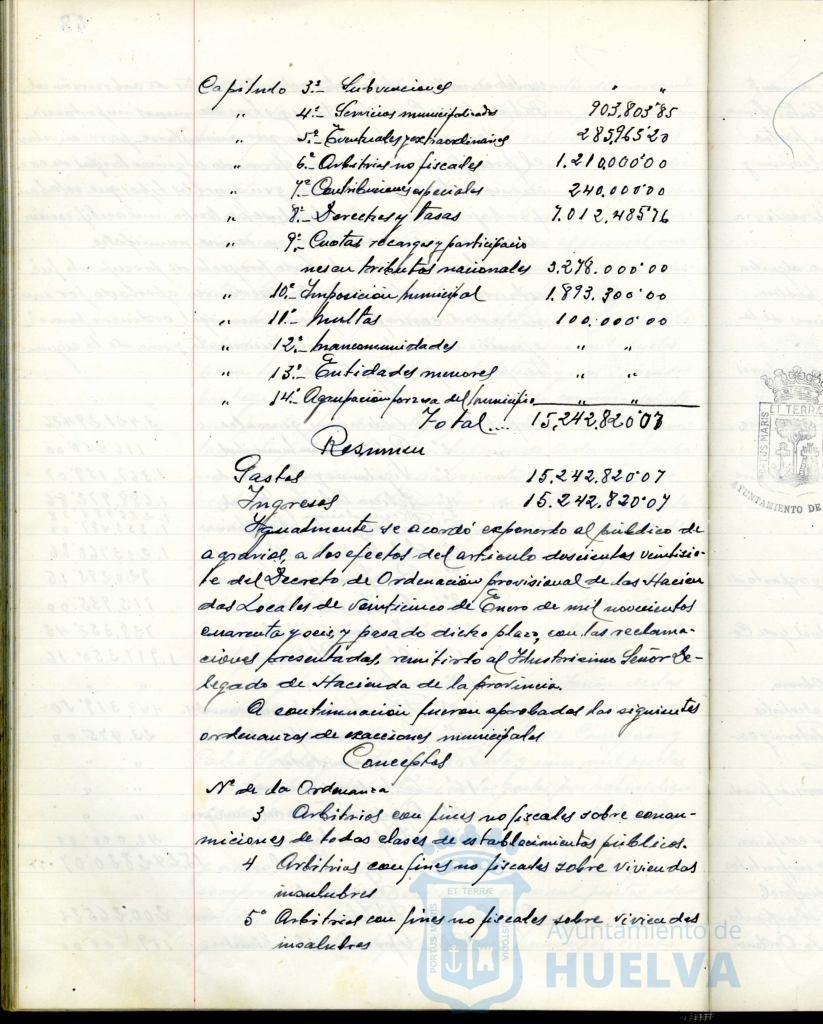 Capitulo 3º.- Subvenciones " "
" 4º.- Servicios municipalizados 903,803'85
" 5º.- Eventuales y extraordinarios 285,965'20
" 6º.- Arbitrios no fiscales 1.210,000'00
" 7º.- Contribuciones especiales 240.000'00
" 8º.- Derechos y tasas 7.012,485'76
" 9º.- Cuotas recargos y participacio
nes en tributos nacionales 3.278.000'00
" 10º.- Imposición municipal 1.893.300'00
" 11º.- Multas 100.000'00
" 12º.- Mancomunidades " "
" 13º.- Entidades menores " "
" 14º.- Agrupación forzosa del municipio " "
Total.... 15,242,820'07
Resumen
Gastos 15.242.820'07
Ingresos 15.242.820'07
Igualmente se acordó exponerlo al público de
agravios, a los efectos del artículo doscientos veintisie-
te del Decreto de Ordenación provisional de las Hacien
das Locales de veinticinco de Enero de mil novecientos
cuarenta y seis, y pasado dicho plazo, con las reclama-
ciones presentadas, remitirlo al Ilustrisimo Señor De-
legado de Hacienda de la provincia.
A continuación fueron aprobadas las siguientes
ordenanzas de exacciones municipales
Conceptos
Nº de la Ordenanza
3 Arbitrios con fines no fiscales sobre consu-
miciones de todas clases de establecimientos públicos.
4 Arbitrios con fines no fiscales sobre viviendas
insalubres
5º Arbitrios con fines no fiscales sobre viviendas
insalubres
ET TERRÆ
PORTUS MARIS
AYUNTAMIENTO DE
ET TERRÆ
PORTUS MARIS
CUSTODIA
Ayuntamiento de
HUELVA